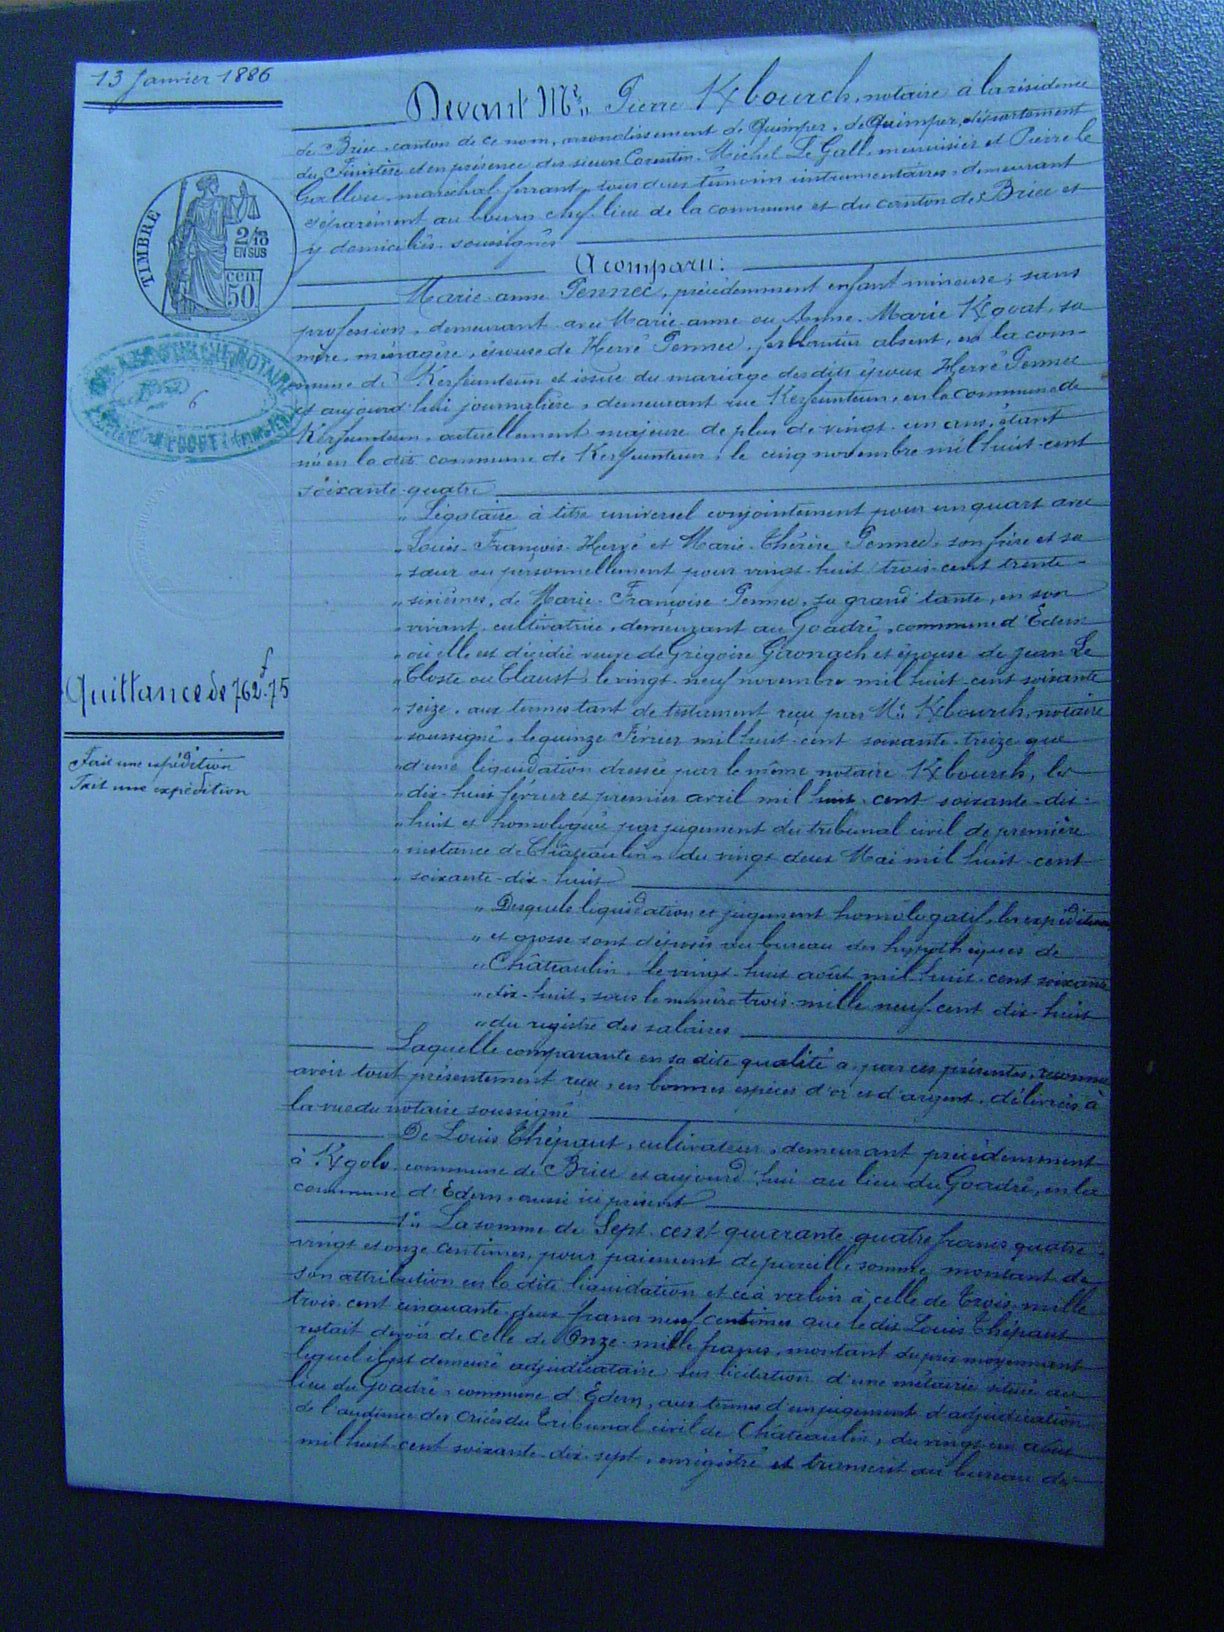 13 Janvier 1886
Devant Me Pierre K/bourch, notaire à la résidence
de Briec, canton de ce nom, arrondissement de Quimper, de Quimper, département
du Finistère et en présence des sieurs Corentin Michel Le Gall, menuisier et Pierre le
Gallou, maréchal ferrant, tous deux témoins instrumentaires, demeurant
séparément au bourg chef-lieu de la commune et du canton de Briec et
y domiciliés, soussignés
A comparu:
TIMBRE
2/10
EN SUS
50 cen
Marie-anne Pennec, précédemment enfant mineure, sans
profession, demeurant avec Marie-anne ou Anne-Marie K/goat, sa
mère, ménagère, épouse de Hervé Pennec, ferblantier absent, en la com-
mune de Kerfeunteun et issue du mariage des dits époux Hervé Pennec
et aujourd'hui journalière, demeurant rue Kerfeunteun, en la commune de
Kerfeunteun, actuellement majeure de plus de vingt-un ans, étant
née en la dite commune de Kerfeunteun, le cinq novembre mil huit-cent
soixante-quatre
NOTAIRE
6
" Légataire à titre universel conjointement pour un quart avec
" Louis-François-Hervé et Marie-Thérèse Pennec, son frère et sa
" sœur ou personnellement pour vingt-huit trois-cent trente-
" sixièmes, de Marie-Françoise Pennec, sa grand'tante, en son
" vivant, cultivatrice, demeurant au Goadré, commune d'Edern
" où elle est décédée veuve de Grégoire Gironach et épouse de Jean Le
" Closte ou Claust, le vingt-neuf novembre mil huit-cent soixante
" seize, aux termes tant de testament reçu par Me K/bourch, notaire
" soussigné, le quinze Février mil huit-cent soixante-treize que
" d'une liquidation dressée par le même notaire K/bourch, les
" dix-huit février et premier avril mil huit-cent soixante-dix-
" huit et homologuée par jugement du tribunal civil de première
" instance de Châteaulin, du vingt deux Mai mil huit-cent
" soixante-dix-huit
Quittance de 762f.75
Fait une expédition
Fait une expédition
" Desquels liquidation et jugement homologatif, les expéditions
" et grosse sont déposés au bureau des hypothèques de
" Châteaulin, le vingt-huit août mil huit-cent soixante
" dix-huit, sous le numéro trois-mille neuf-cent dix-huit
" du registre des salaires
Laquelle comparante en sa dite qualité a, par ces présentes, reconnu
avoir tout présentement reçu, en bonnes espèces d'or et d'argent, délivrées à
la vue du notaire soussigné
De Louis Thépaut, cultivateur, demeurant précédemment
à K/golo, commune de Briec et aujourd'hui au lieu du Goadré, en la
commune d'Edern, aussi ici présent
1° La somme de Sept-cent quarante-quatre francs quatre-
vingt et onze centimes, pour paiement de pareille somme montant de
son attribution en la dite liquidation et ce à valoir à celle de Trois-mille
trois-cent cinquante-deux francs neuf centimes que le dit Louis Thépaut
restait devoir de celle de Onze-mille francs, montant du prix moyennant
lequel il est demeuré adjudicataire sur licitation d'une métairie située au
lieu du Goadré, commune d'Edern, aux termes d'un jugement d'adjudication
de l'audience des criées du Tribunal civil de Châteaulin, du vingt-un août
mil huit-cent soixante-dix-sept, enregistré et transcrit au bureau des